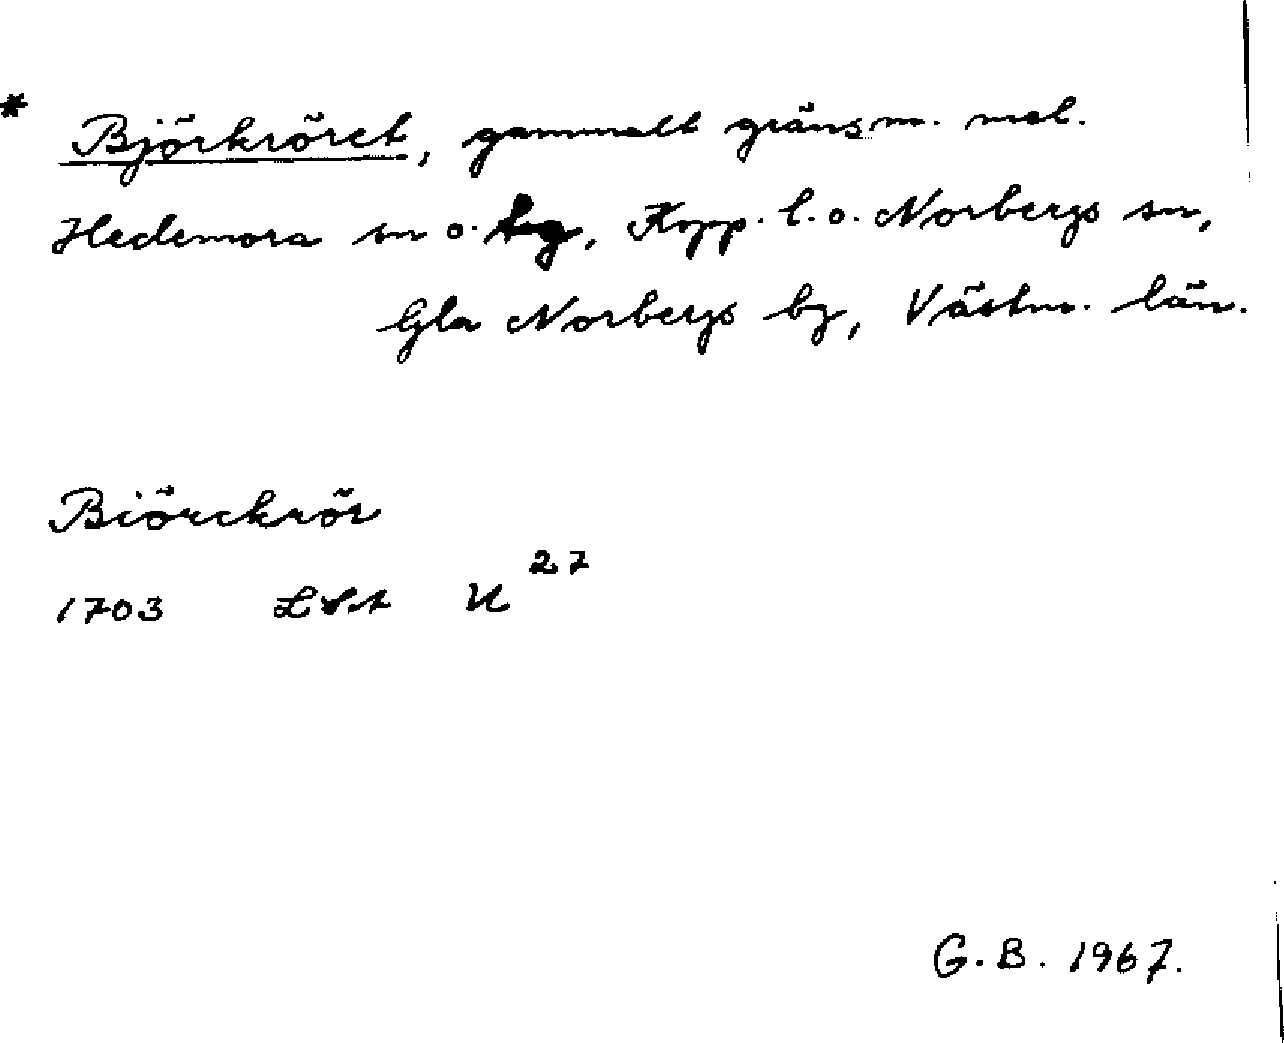 * Björkröret, gammalt gränsm. mel.
Hedemora sn o. hg, Kopp. l. o. Norbergs sn,
Gla Norbergs bg, Västm. län.
Biörckrör
1703 LSA U 27
G. B. 1967.